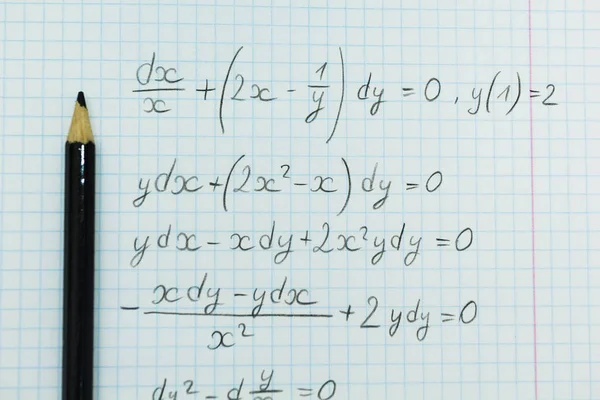 dx/x + (2x - 1/y) dy = 0, y(1) = 2
ydx + (2x² - x) dy = 0
ydx - xdy + 2x²ydy = 0
- (xdy - ydx)/x² + 2ydy = 0
dy² - d y/x = 0